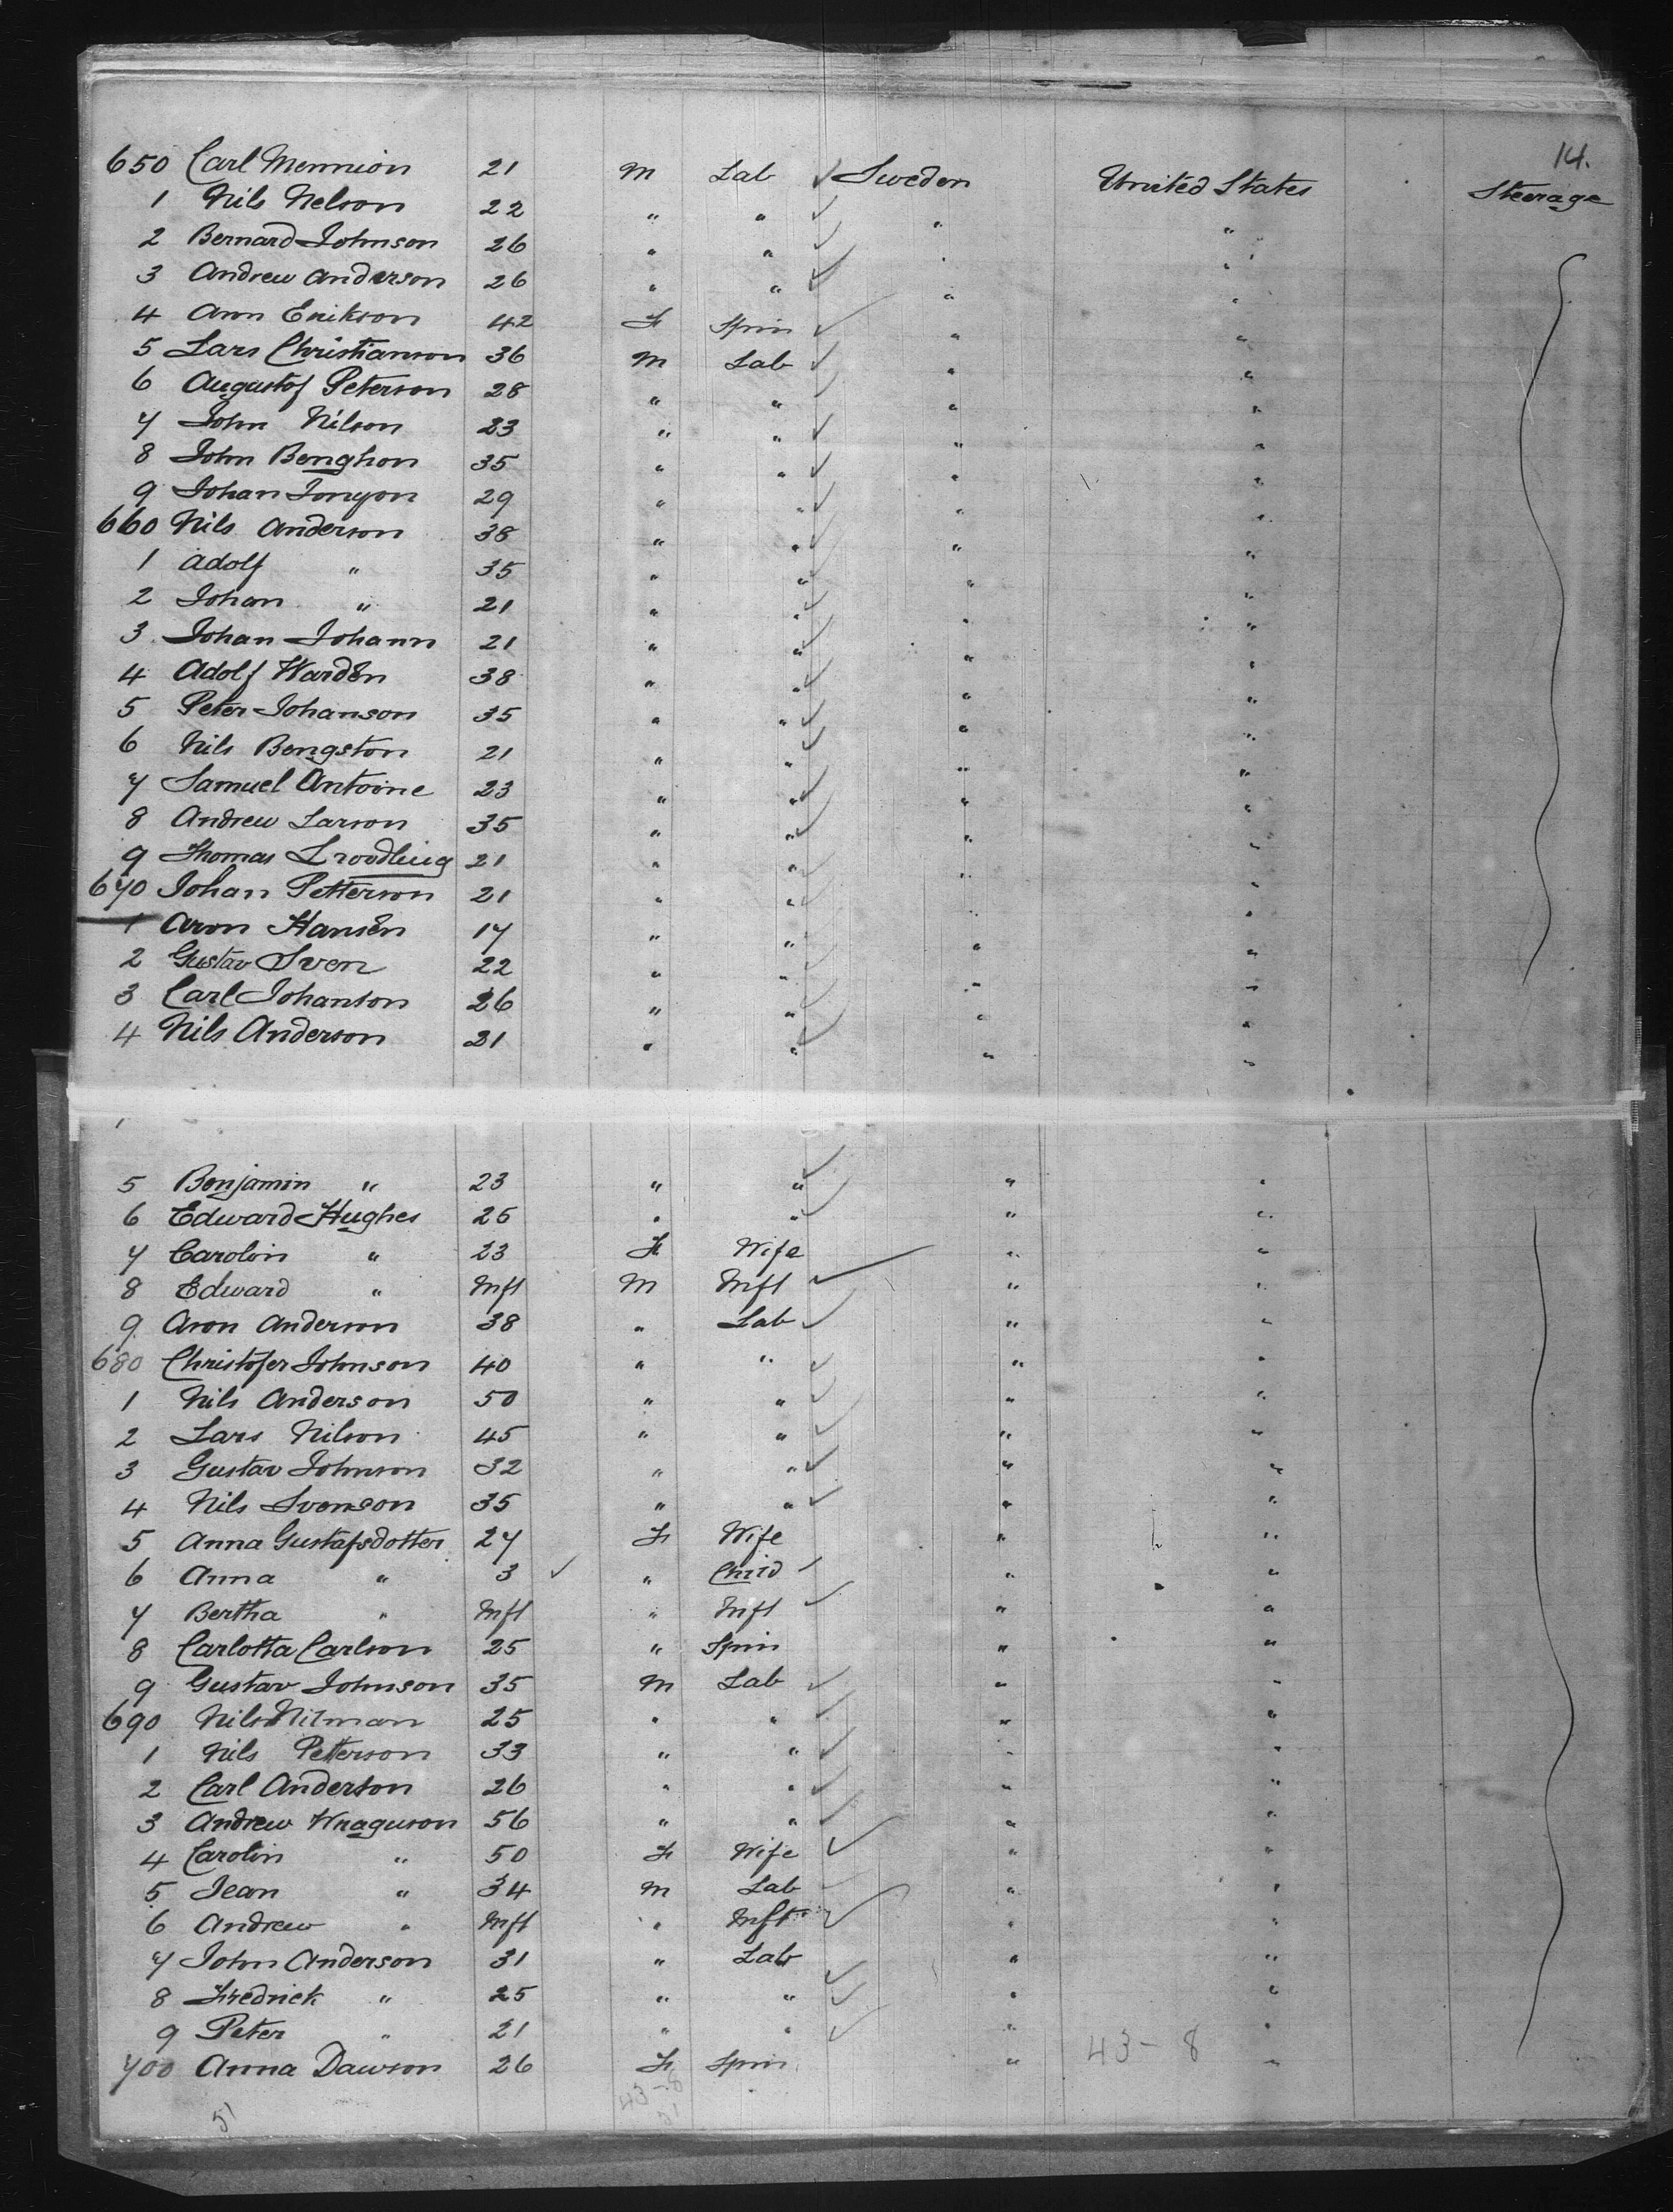 14.
650 Carl Mennion 21 M Lab ✓ Sweden United States Steerage
1 Nils Nelson 22 " " ✓ " "
2 Bernard Johnson 26 " " ✓ " "
3 Andrew Anderson 26 " " ✓ " "
4 Ann Erikson 42 F Spin ✓ " "
5 Lars Christianson 36 M Lab ✓ " "
6 Augustof Peterson 28 " " ✓ " "
7 John Nilson 23 " " ✓ " "
8 John Benghon 35 " " ✓ " "
9 Johan Jonyon 29 " " ✓ " "
660 Nils Anderson 38 " " ✓ " "
1 Adolf " 35 " " ✓ " "
2 Johan " 21 " " ✓ " "
3 Johan Johann 21 " " ✓ " "
4 Adolf Warden 38 " " ✓ " "
5 Peter Johanson 35 " " ✓ " "
6 Nils Bengston 21 " " ✓ " "
7 Samuel Antoine 23 " " ✓ " "
8 Andrew Larson 35 " " ✓ " "
9 Thomas 21 " " ✓ " "
670 Johan Petterson 21 " " ✓ " "
1 Aron Hansen 17 " " ✓ " "
2 Gustav Sven 22 " " ✓ " "
3 Carl Johanson 26 " " ✓ " "
4 Nils Anderson 21 " " ✓ " "
5 Benjamin " 23 " " ✓ " "
6 Edward Hughes 25 " " ✓ " "
7 Carolin " 23 F Wife " "
8 Edward " Inft M Inft ✓ " "
9 Aron Anderson 38 " Lab ✓ " "
680 Christofer Johnson 40 " " ✓ " "
1 Nils Anderson 50 " " ✓ " "
2 Lars Nilson 45 " " ✓ " "
3 Gustav Johnson 32 " " ✓ " "
4 Nils Svenson 35 " " ✓ " "
5 Anna Gustafsdotter 27 F Wife " "
6 Anna " 3 ✓ " Child ✓ " "
7 Bertha " Inft " Inft ✓ " "
8 Carlotta Carlson 25 " Spin " "
9 Gustav Johnson 35 M Lab ✓ " "
690 Nils Nilman 25 " " ✓ " "
1 Nils Petterson 33 " " ✓ " "
2 Carl Anderson 26 " " ✓ " "
3 Andrew Wraguson 56 " " ✓ " "
4 Carolin " 50 F Wife ✓ " "
5 Jean " 34 M Lab ✓ " "
6 Andrew " Inft " Inft ✓ " "
7 John Anderson 31 " Lab ✓ " "
8 Fredrick " 25 " " ✓ " "
9 Peter " 21 " " ✓ " "
700 Anna Dawson 26 F Spin " 43-8 "
43-8
51
51